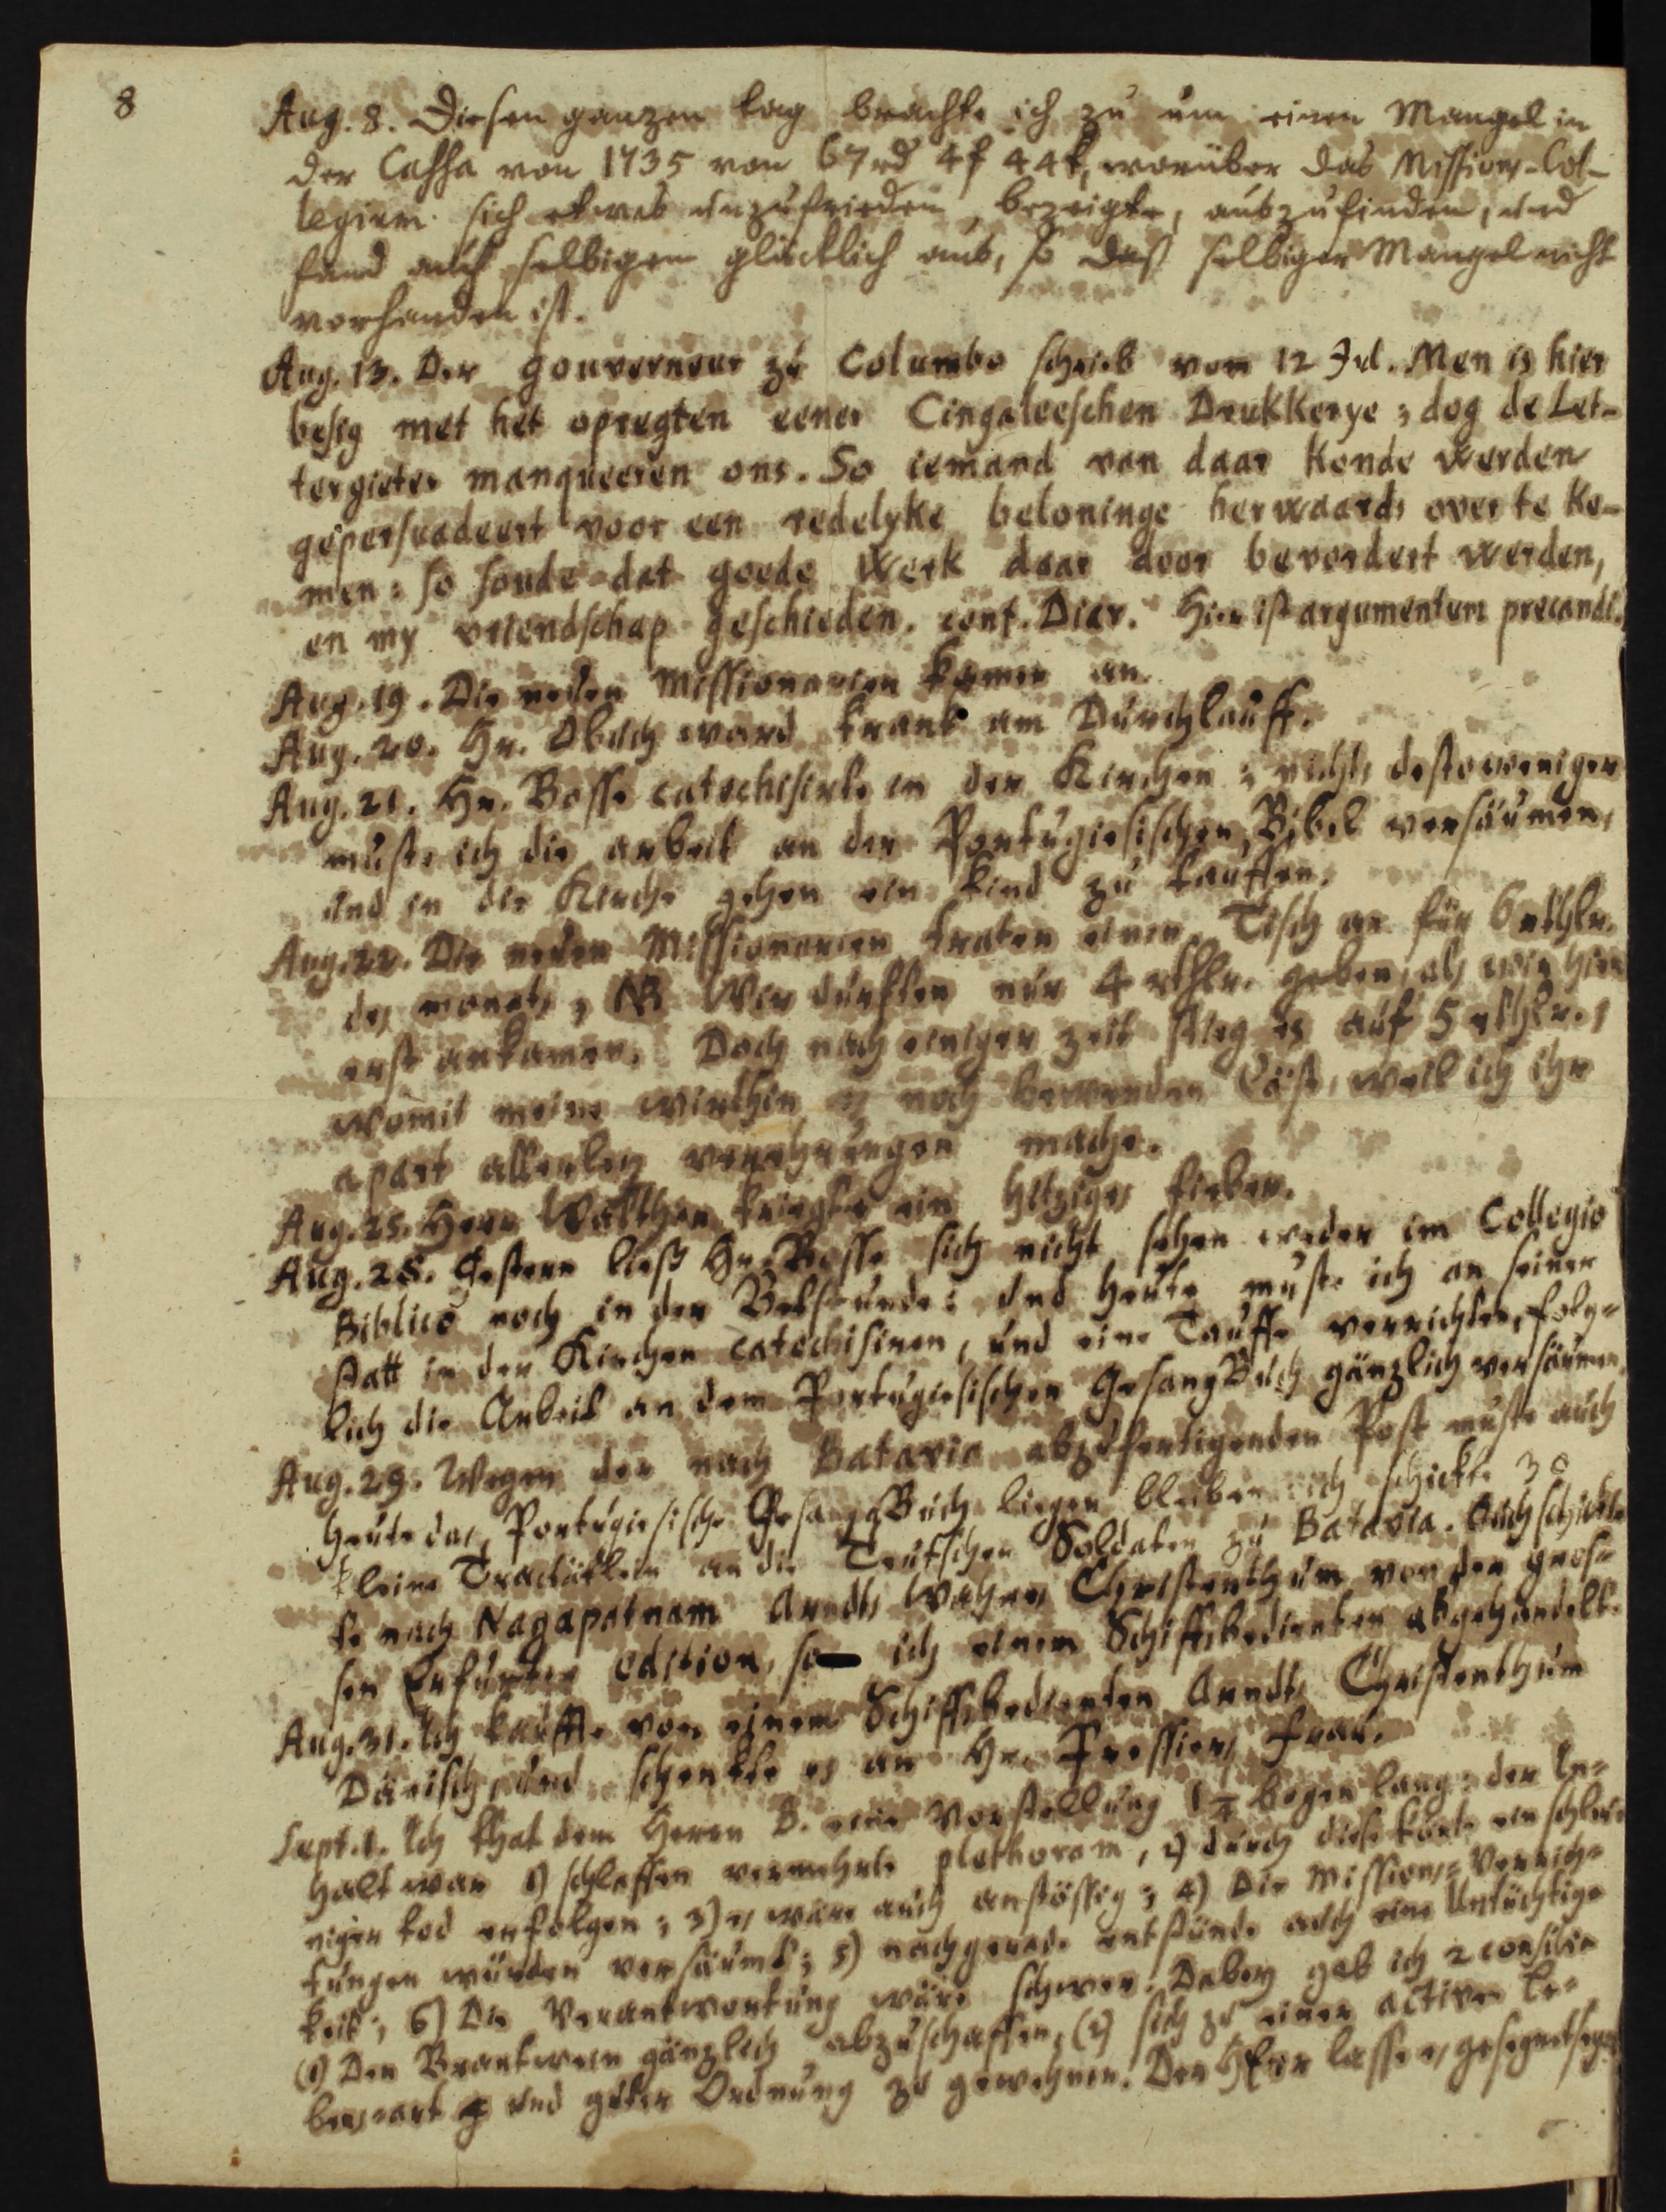 8
Aug. 8. Diesen ganzen tag brachte ich zu um einen Mangel in
der Cassa von 1735 von 67rd 4f 44k, worüber das Mission-Col-
legium sich etwas unzufrieden bezeigte, auszufinden, und
fand auch selbigen glücklich aus, so daß selbiger Mangel nicht
vorhanden ist.
Aug. 13. Der gouverneur zu Columbo schrieb vom 12 Jul. Men is hier
besig met het opregten eener Cingaleeschen Drukkerye; dog de Let-
tergieter manqueeren ons. So iemand van daar konde werden
gepersuadeert voor een redelyke beloninge herwaards over te ko-
men: so soude dat goede Werk daar door bevordert werden,
en my vriendschap geschieden. conf. Diar. Hier ist argumentum precandi.
Aug. 19. Die neuen Missionarien kamen an.
Aug. 20. Hr. Obuch ward krank am Durchlauff.
Aug. 21. Hr. Bosse catechisirte in der Kirchen; nichts destoweniger
muste ich die arbeit an der Portugiesischen Bibel versäumen,
und in die Kirche gehen ein kind zu tauffen.
Aug. 22. Die neuen Missionarien traten einen Tisch an für 6 rthlr.
des monats; NB Wir durften nur 4 rthlr. geben, als wir hier
erst ankamen. Doch nach einiger zeit stieg es auf 5 rthlr.,
womit meine wirthin es noch bewenden läst, weil ich ihr
apart allerley verehrungen mache.
Aug. 25. Herr Walther kriegte ein hitziges fieber.
Aug. 28. Gestern ließ Hr. Bosse sich nicht sehen weder im Collegio
Biblico noch in der Betstunde: und heute muste ich an seiner
statt in der Kirchen catechisiren, und eine Tauffe verrichten, folg-
lich die Arbeit an dem Portugiesischen GesangBuch gänzlich versäumen.
Aug. 29. Wegen der nach Batavia abzufertigenden Post muste auch
heute das Portugiesische GesangBuch liegen bleiben ich schickte 30
kleine Tractätlein an die Teutschen Soldaten zu Batavia. Auch schickte
te nach Nagapatnam Arndts Wahres Christenthum von der gros-
sen Erfurter edition, so ich einem Schiffsbedienten abgehandelt.
Aug. 31. Ich kauffte von einem Schiffsbedienten Arndts Christenthum
Dänisch, und schenkte es an Hr. Pressiers frau.
Sept. 1. Ich that dem Herrn B. eine Vorstellung 1¼ bogen lang: der In-
halt war 1) schlaffen vermehrte plethoram, 2) durch diese könte ein schleu-
nigen tod erfolgen; 3) es wäre auch anstössig; 4) Die Missions-Verrich-
tungen würden versäumt; 5) nachgerade entstünde auch eine Untüchtig-
keit; 6) Die Verantwortung wäre schwer. Dabey gab ich 2 consilia
(1) Den Brantwein gänzlich abzuschaffen, (2) sich zu einer activen le-
bens-art und guter Ordnung zu gewehnen. Der HErr lasse es gesegnet seyn